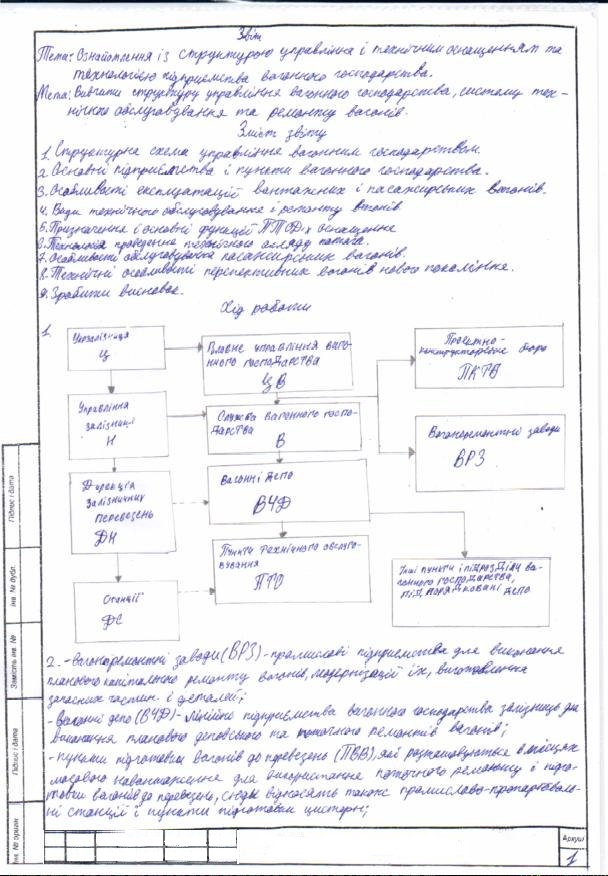 Звіт
Тема: Ознайомлення із структурою управління і технічним оснащенням та
технологією підприємства вагонного господарства.
Мета: Вивчити структуру управління вагонного господарства, систему тех-
нічного обслуговування та ремонту вагонів.
Зміст звіту
1. Структурна схема управління вагонним господарством.
2. Основні підприємства і пункти вагонного господарства.
3. Особливості експлуатації вантажних і пасажирських вагонів.
4. Види технічного обслуговування і ремонту вагонів.
5. Призначення і основні функції ПТО, оснащення
6. Технологія проведення технічного огляду потяга.
7. Особливості обслуговування пасажирських вагонів.
8. Технічні особливості перспективних вагонів нового покоління.
9. Зробити висновок.
Хід роботи
1.
Укрзалізниця
Ц
Головне управління ваго-
нного господарства
ЦВ
Проектно-
конструкторське бюро
ПКТВ
Управління
залізниці
Н
Служба вагонного госпо-
дарства
В
Вагоноремонтні заводи
ВРЗ
Дирекція
залізничних
перевезень
ДН
Вагонні депо
ВЧД
Пункти технічного обслуго-
вування
ПТО
Інші пункти і підрозділи ва-
гонного господарства,
підпорядковані депо
Станції
ДС
2. - вагоноремонтні заводи (ВРЗ) - промислові підприємства для виконання
планового капітального ремонту вагонів, модернізації їх, виготовлення
запасних частин і деталей;
- вагонні депо (ВЧД) - лінійні підприємства вагонного господарства залізниць для
виконання планового деповського та поточного ремонтів вагонів;
- пункти підготовки вагонів до перевезень (ППВ), які розташовуються в місцях
масового навантаження для використання поточного ремонту і підго-
товки вагонів до перевезень, сюди відносять також промивально-пропарюваль-
ні станції і пункти підготовки цистерн;
Підпис і дата
Інв. № дубл.
Замість інв. №
Підпис і дата
Інв. № оригин.
Аркуш
1